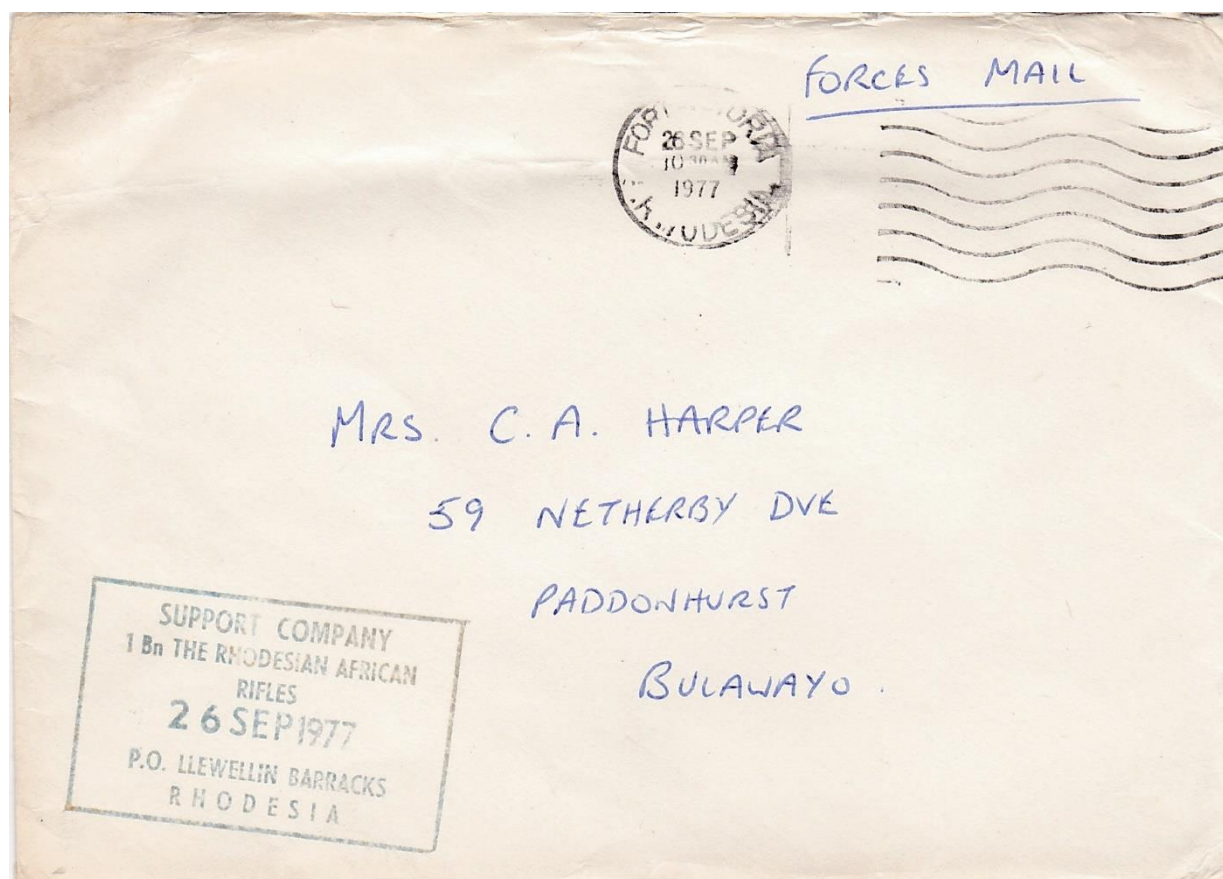 FORCES MAIL
26 SEP
10 30 AM
1977
MRS. C. A. HARPER
59 NETHERBY DVE
PADDONHURST
BULAWAYO.
SUPPORT COMPANY
1 Bn THE RHODESIAN AFRICAN
RIFLES
26 SEP 1977
P.O. LLEWELLIN BARRACKS
RHODESIA